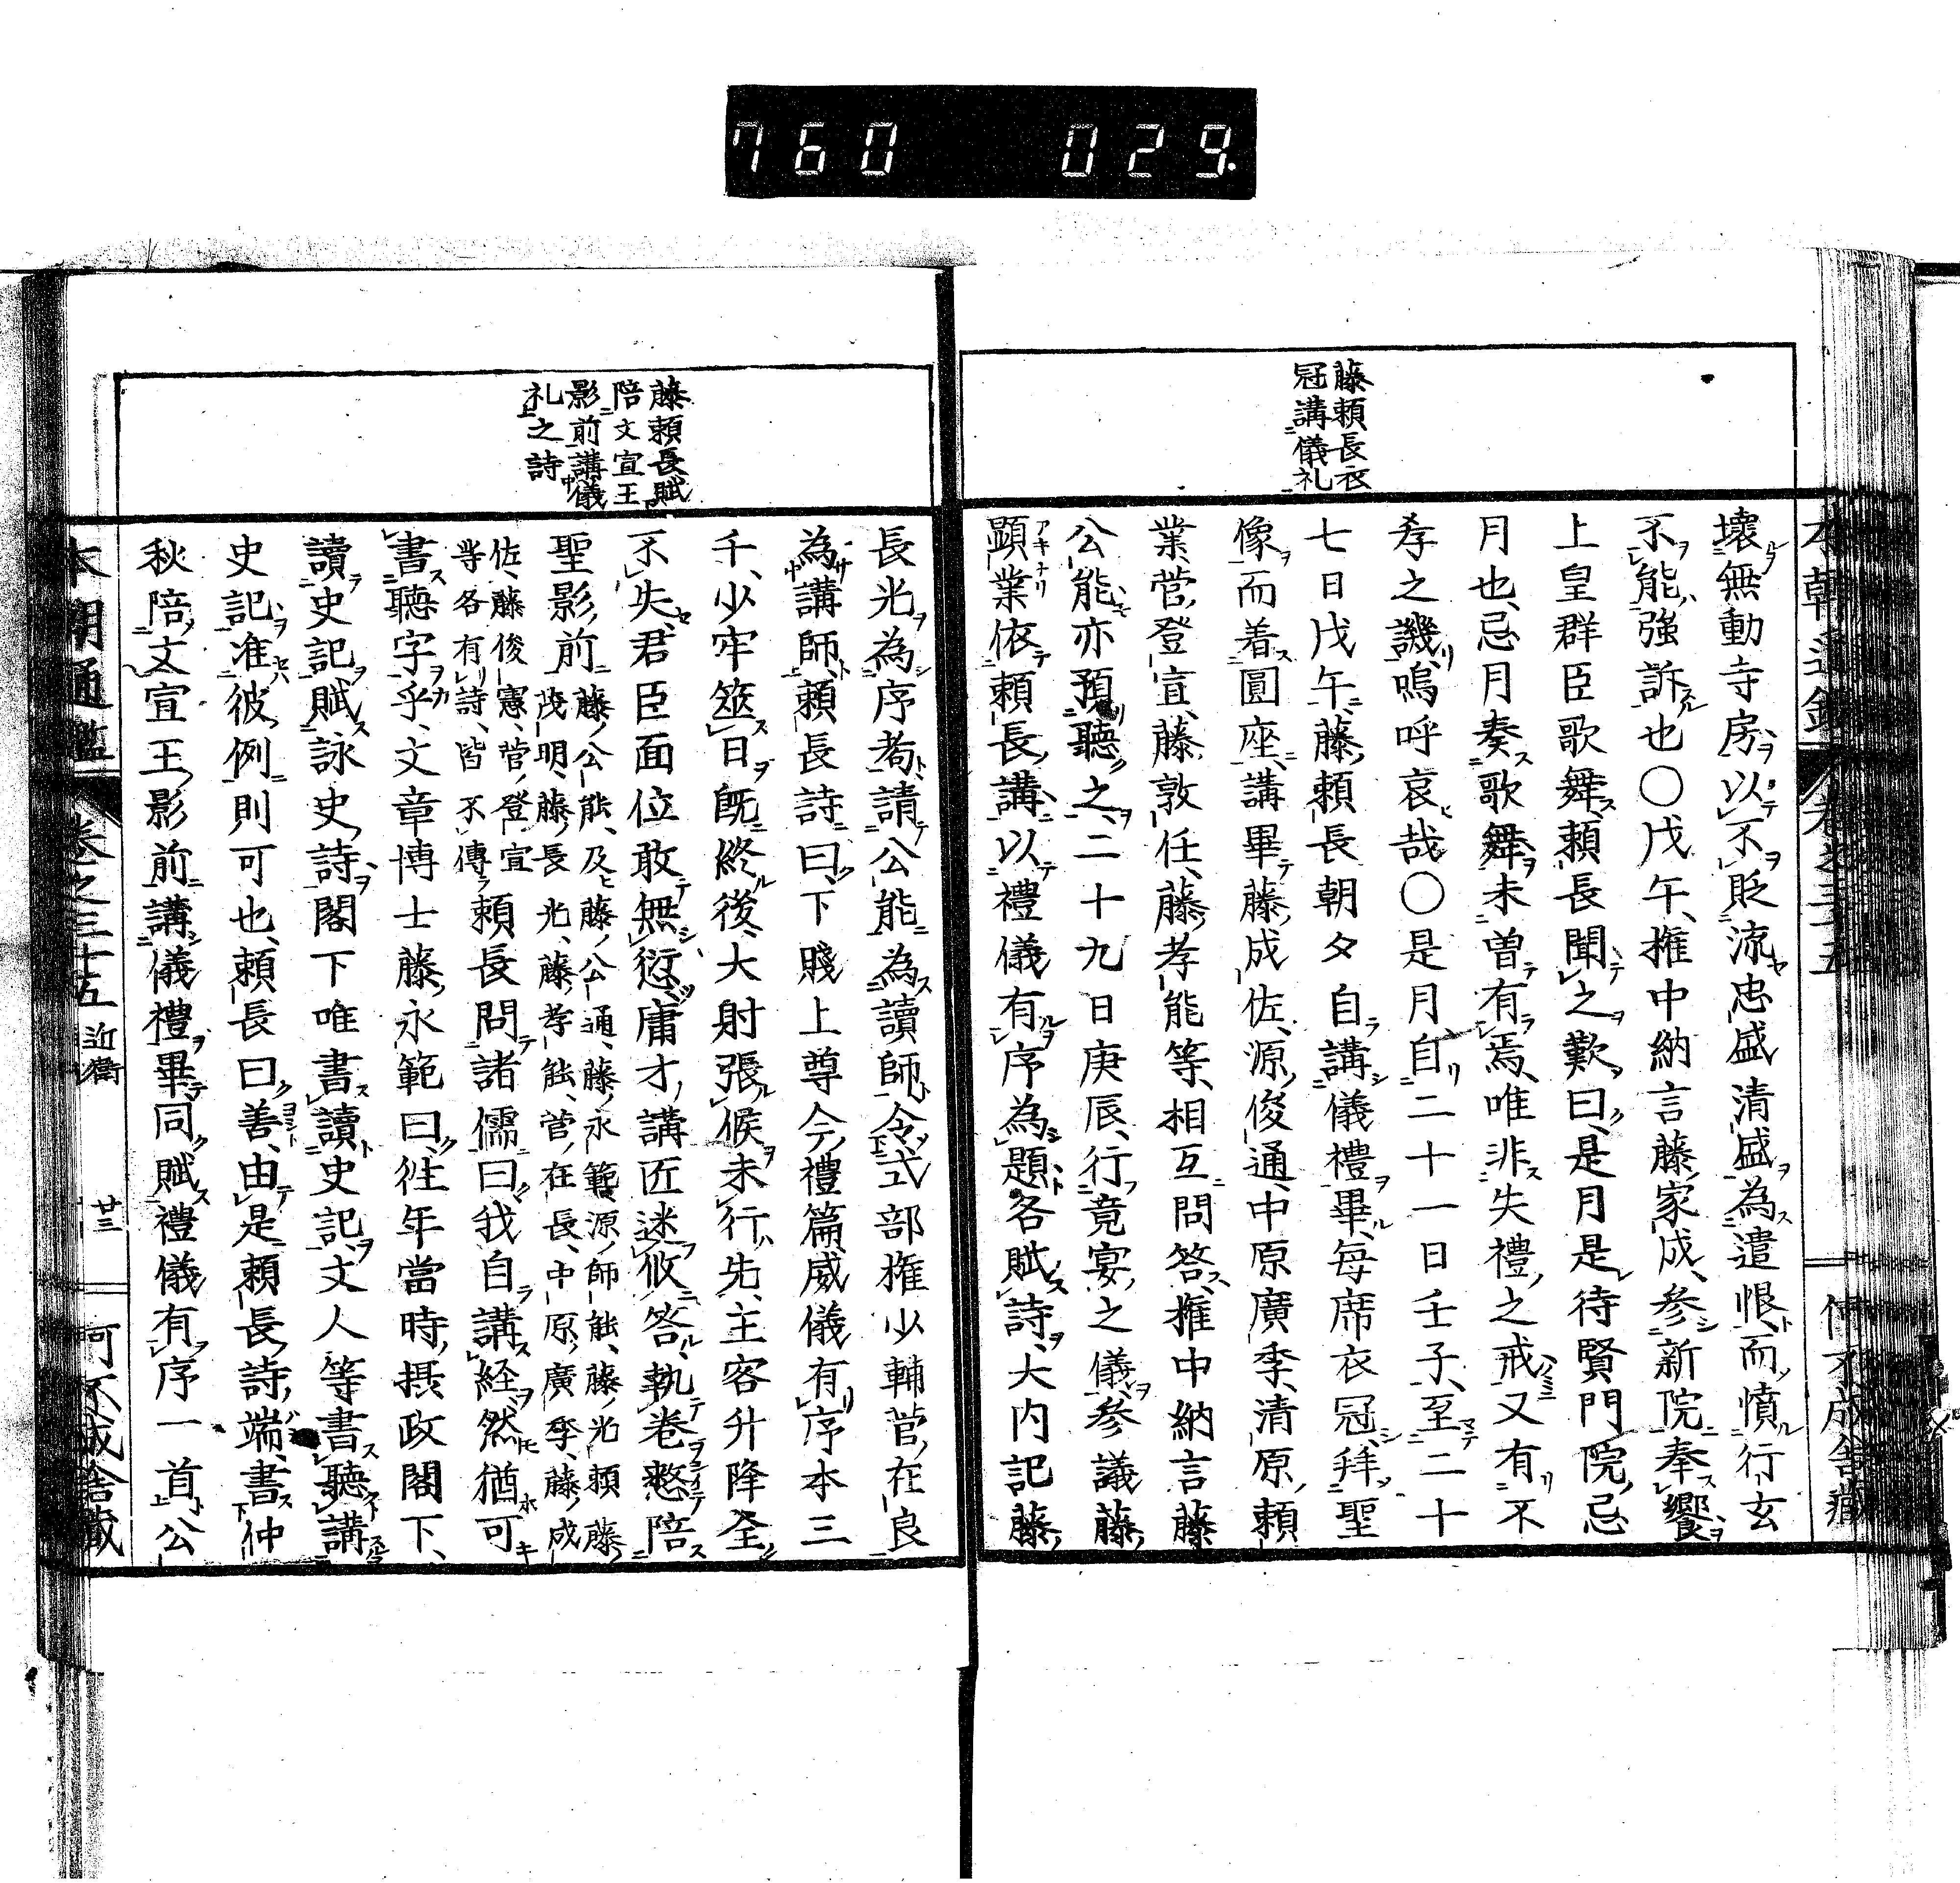 760 029.
藤頼長衣
冠講儀礼
本朝通鑑 卷之三十五
壞無動寺房以不貶流忠盛清盛為遣恨而憤行玄
不能強訴也〇戊午權中納言藤家成參新院奉饗
上皇群臣歌舞頼長聞之歎曰是月是待賢門院忌
月也忌月奏歌舞未曽有焉唯非失禮之戒又有不
孝之譏嗚呼哀哉〇是月自二十一日壬子至二十
七日戊午藤頼長朝夕自講儀禮畢每席衣冠拜聖
像而着圓座講畢藤成佐源俊通中原廣季清原頼
業菅登宣藤敦任藤孝能等相互問答權中納言藤
公能亦預聽之二十九日庚辰行竟宴之儀參議藤
顕業依頼長講以禮儀有序為題各賦詩大内記藤
藤頼長賦
陪文宣王
影前講儀
礼之詩
長光為序者請公能為讀師令式部權少輔菅在良
為講師頼長詩曰下賤上尊今禮篇威儀有序本三
千少牢筮日既終後大射張候未行先主客升降全
不失君臣面位敢無愆庸才講匠迷攸答執卷慗陪
聖影前藤公能及藤公通藤永範源師能藤光頼藤
茂明藤長光藤孝能菅在長中原廣季藤成
佐藤俊憲菅登宣
等各有詩皆不傳頼長問諸儒曰我自講経然猶可
書聽字乎文章博士藤永範曰往年當時摂政閣下
讀史記賦詠史詩閣下唯書讀史記文人等書聽講
史記准彼例則可也頼長曰善由是頼長詩端書仲
秋陪文宣王影前講儀禮畢同賦禮儀有序一首公
本朝通鑑 卷之三十五 近衛 廿三